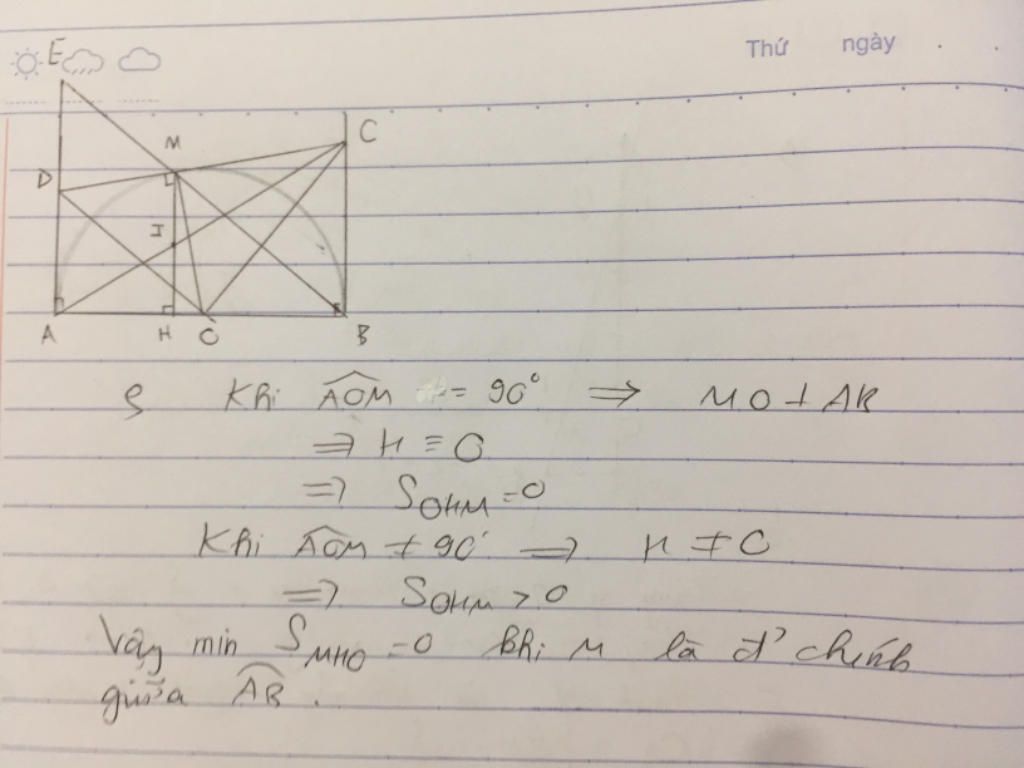 Thứ ngày
E
M C
D
I
A H O B
S Khi AOM = 90° ⇒ MO ⊥ AB
⇒ H ≡ O
⇒ S_OHM = 0
Khi AOM ≠ 90° ⇒ H ≠ O
⇒ S_OHM > 0
Vậy min S_MHO = 0 khi M là đ' chính
giữa AB.